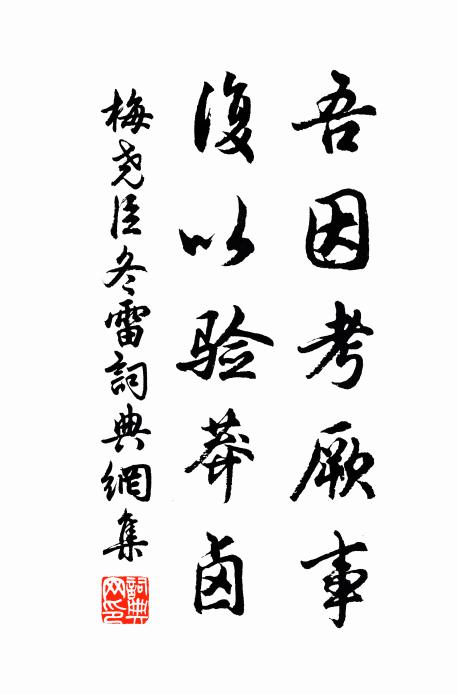 吾因考厥事
復以验莽卤
梅尧臣冬雷詞典網集
詞典网印